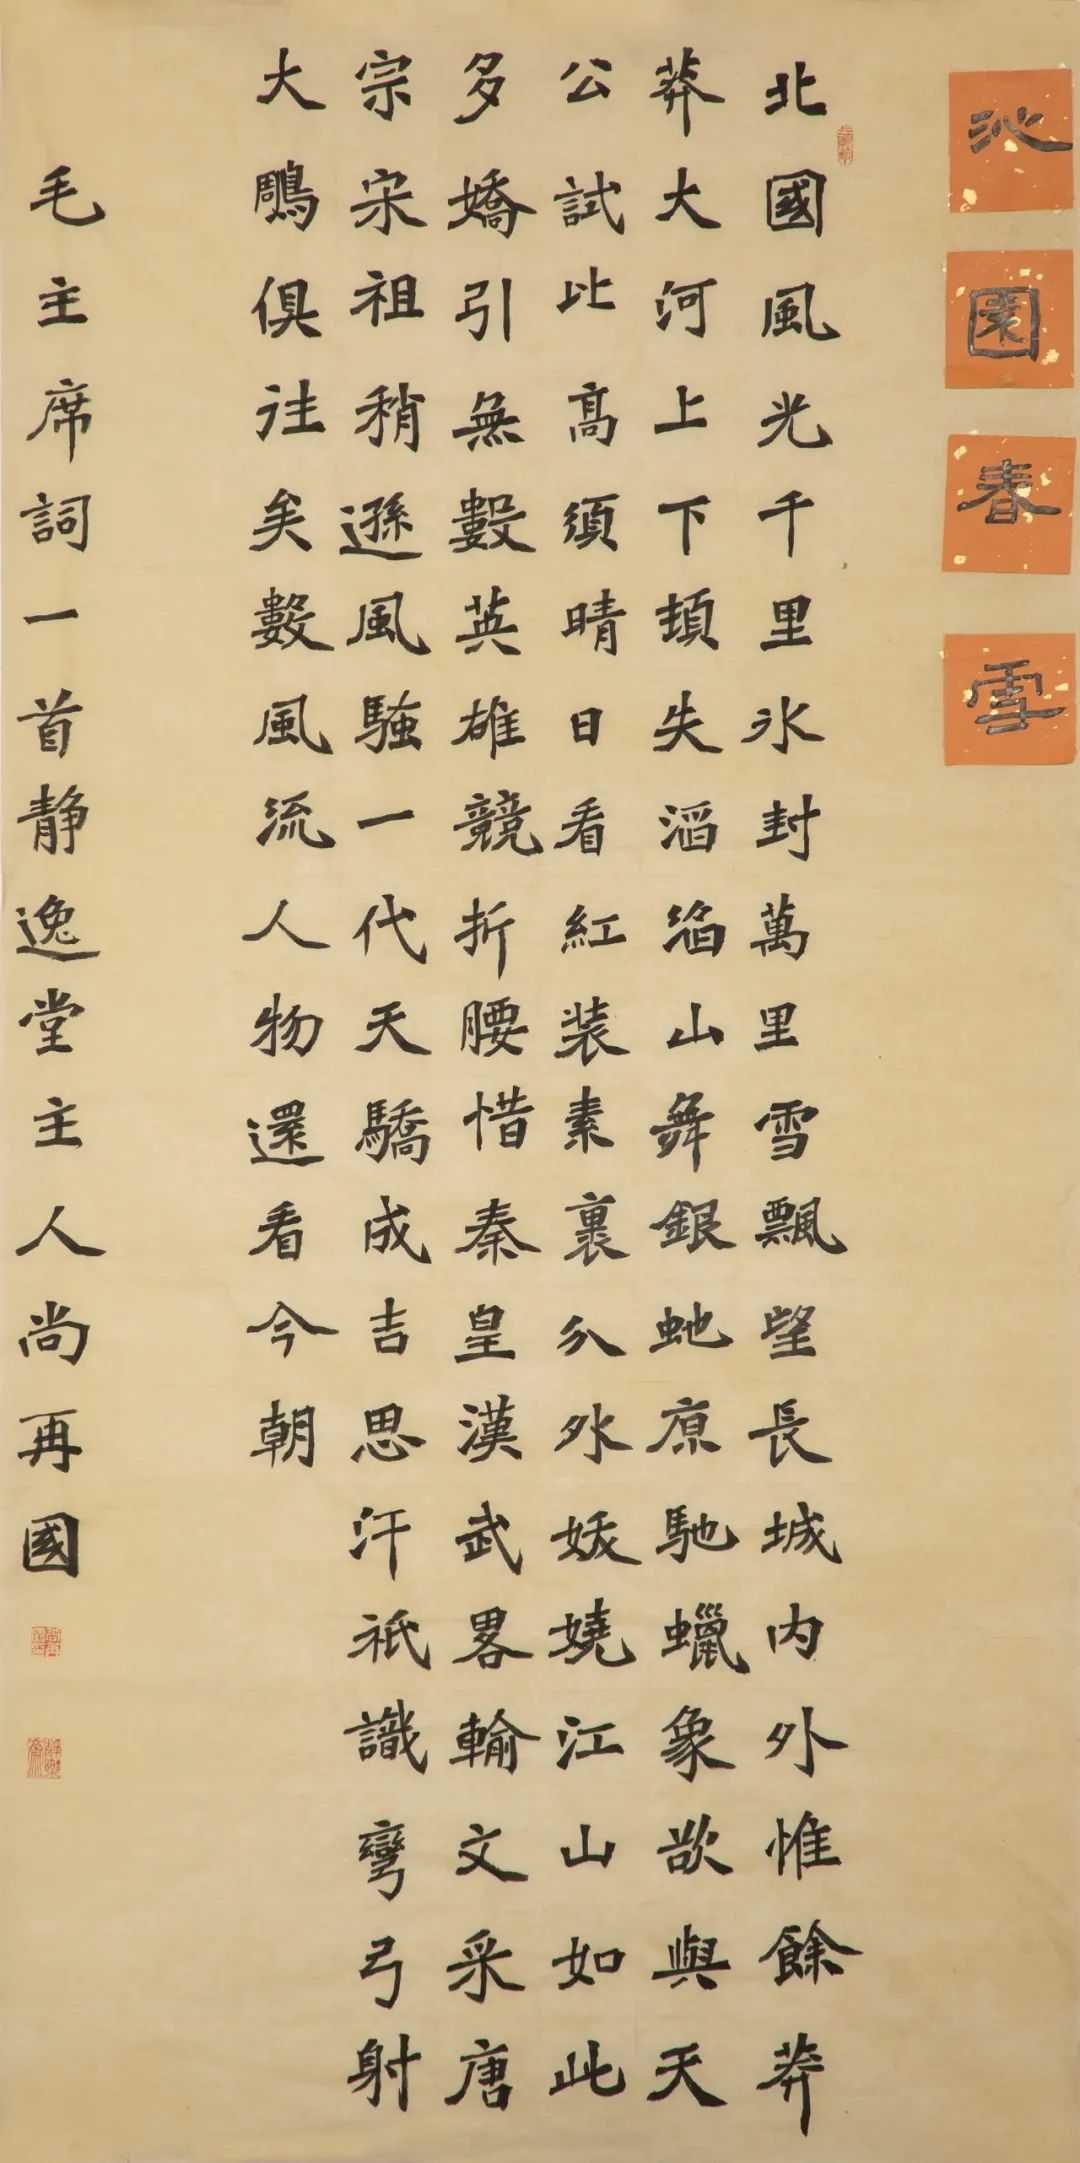 沁園春雪
北國風光千里氷封萬里雪飄望長城内外惟餘莽
莽大河上下頓失滔滔山舞銀虵原馳蠟象欲與天
公試比髙須晴日看紅装素裹分外妖嬈江山如此
多嬌引無數英雄競折腰惜秦皇漢武畧輸文采唐
宗宋祖稍遜風騷一代天驕成吉思汗祇識彎弓射
大鵰俱往矣數風流人物還看今朝
毛主席詞一首静逸堂主人尚再國